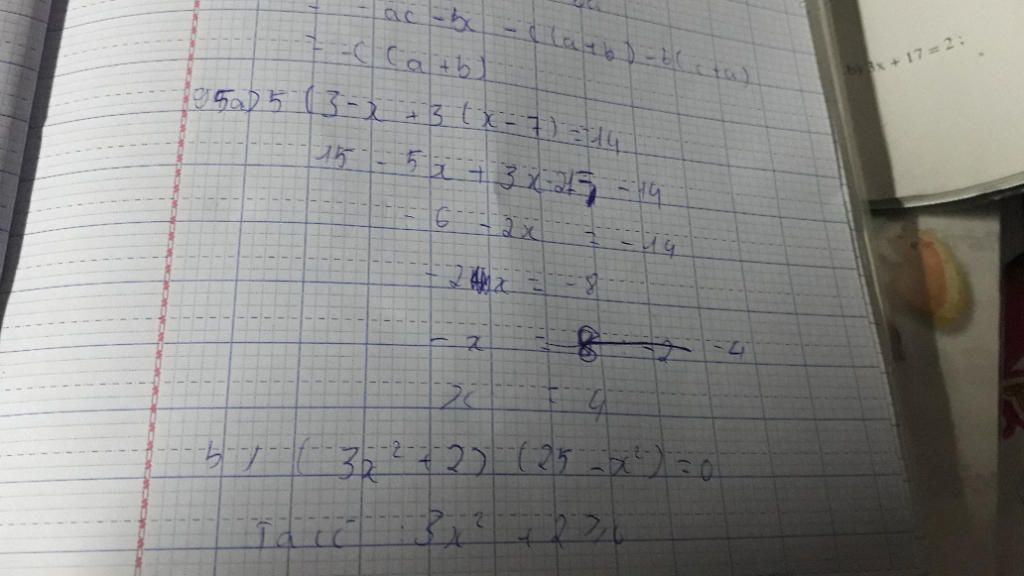 - ac - bc - c(a+b) - b(c+a)
= -c(a+b)
b) 3x + 17 = 2;
5a) 5(3-x + 3(x-7) = -14
15 - 5x + 3x - 21 = -14
- 6 - 2x = -14
- 2x = -8
- x = -4
x = 4
b) (3x² + 2) (25 - x²) = 0
Ta có 3x² + 2 ≥